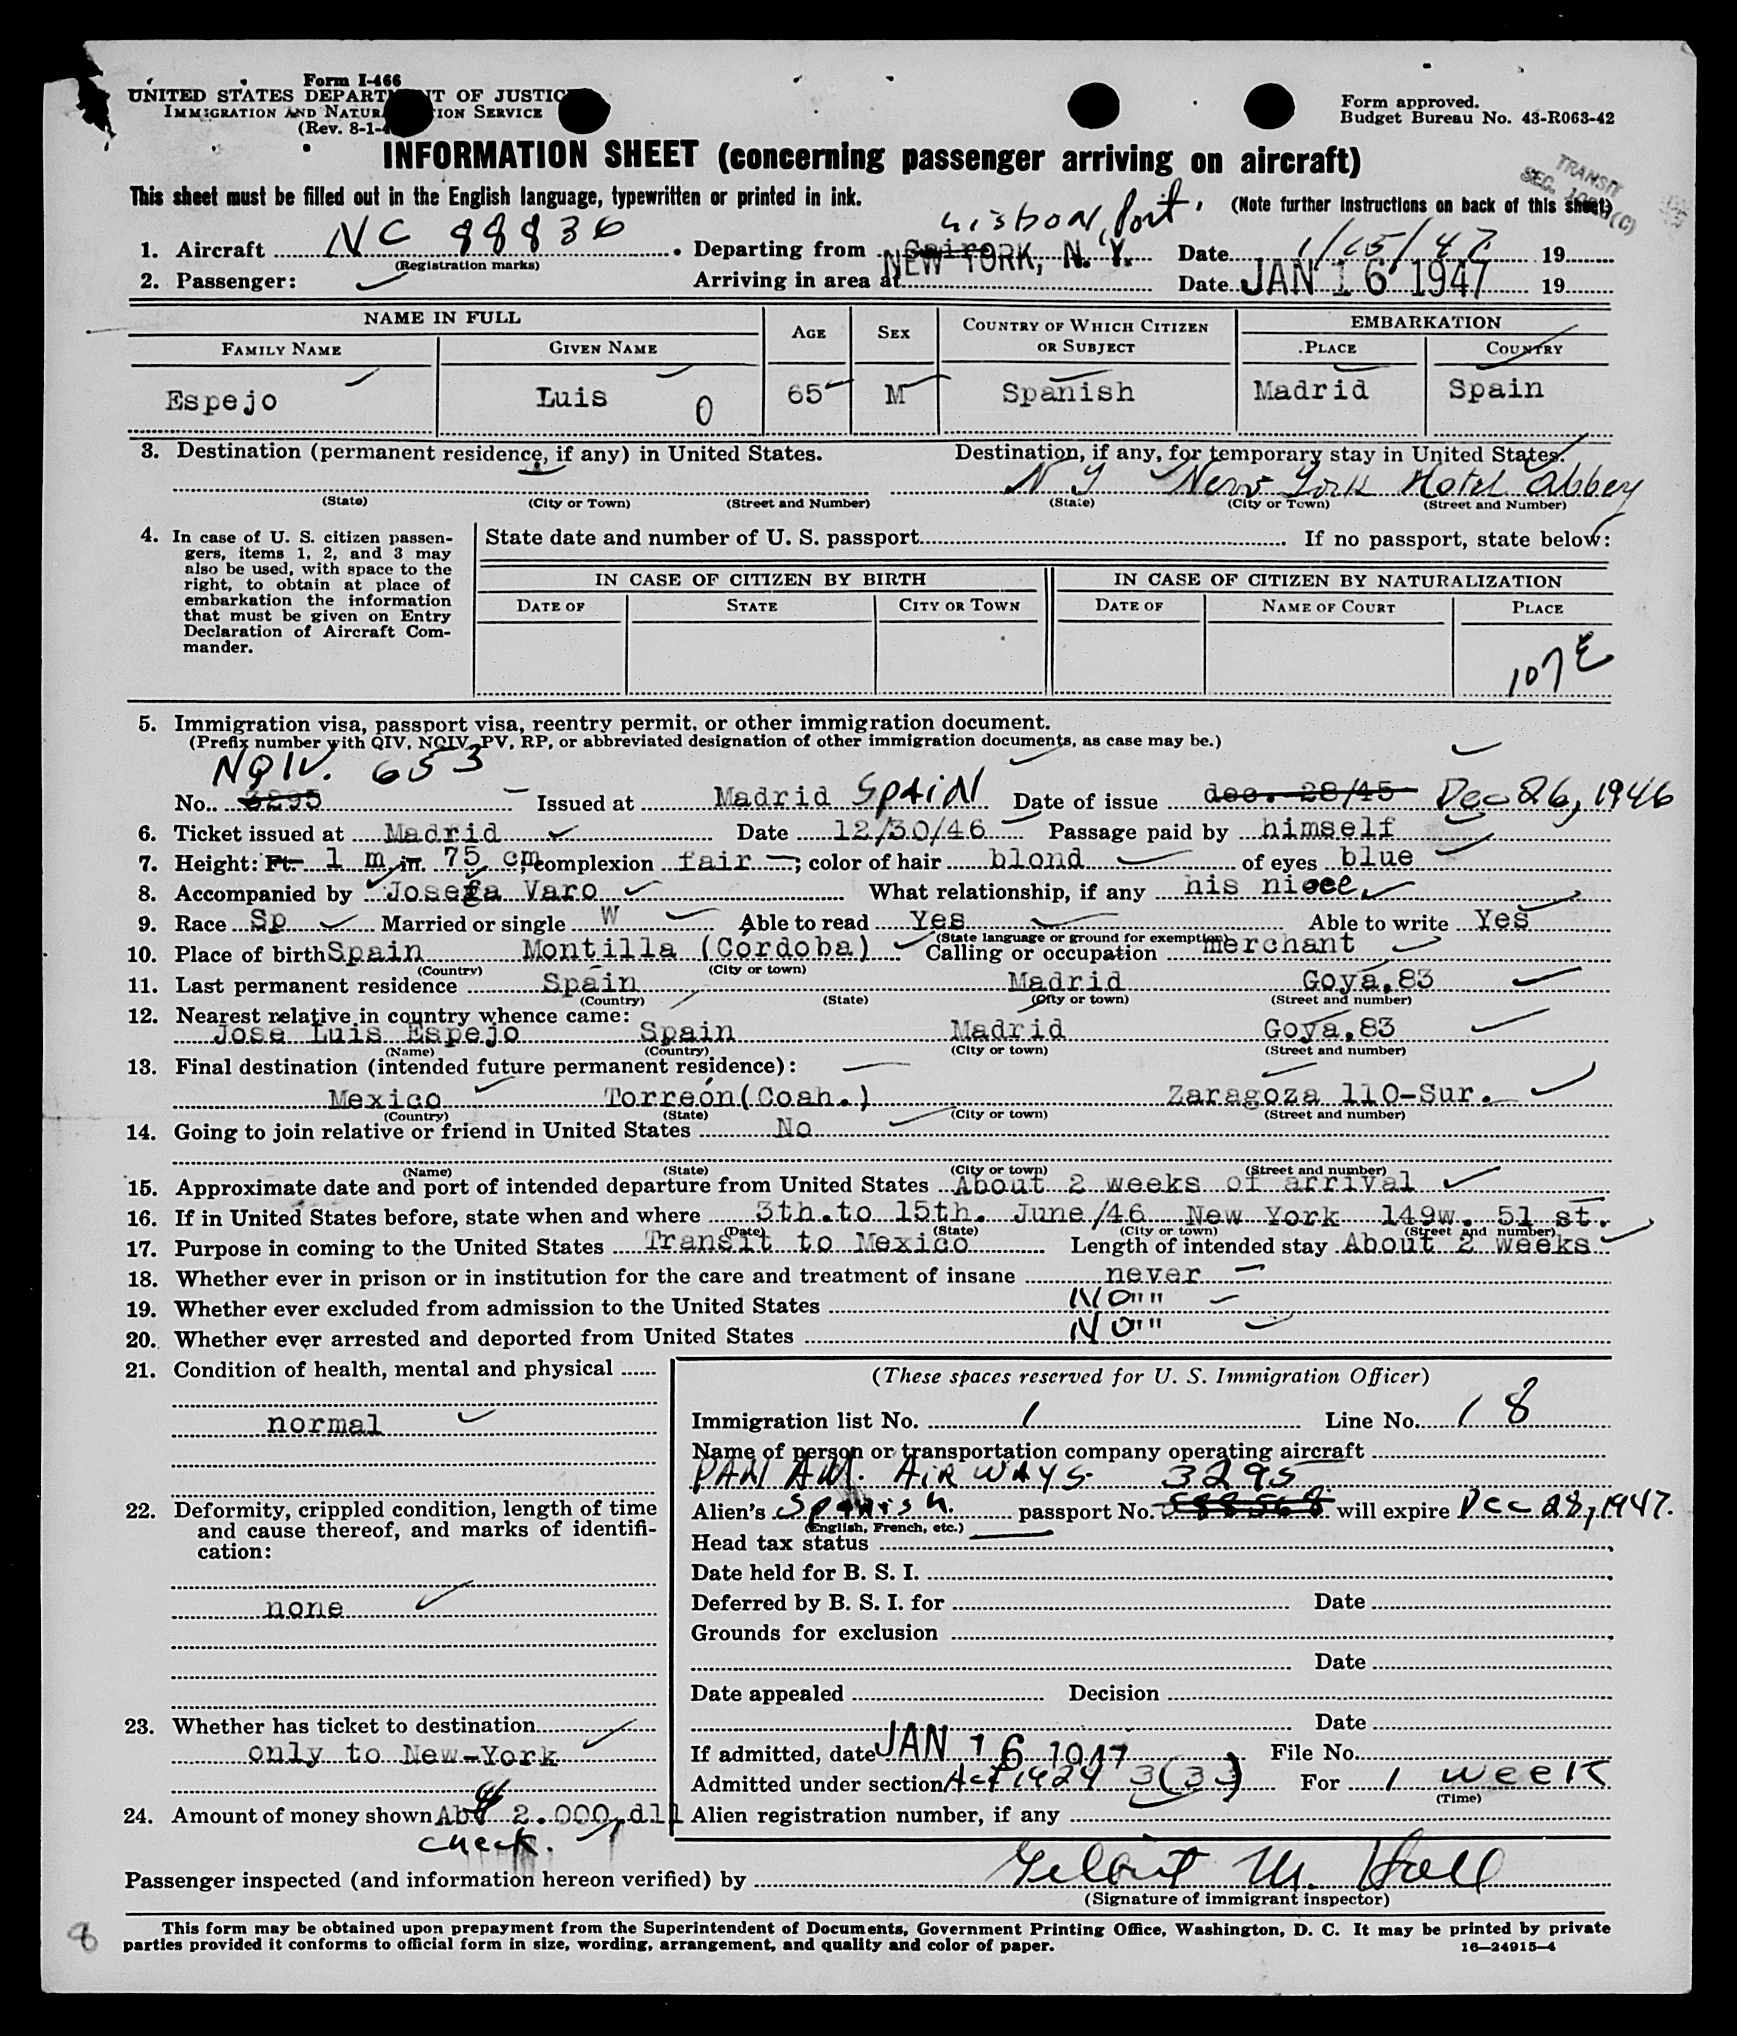 Form I-466
UNITED STATES DEPARTMENT OF JUSTICE
IMMIGRATION AND NATURALIZATION SERVICE
(Rev. 8-1-
Form approved.
Budget Bureau No. 43-R063-42
INFORMATION SHEET (concerning passenger arriving on aircraft)
TRANSIT
SEC.
This sheet must be filled out in the English language, typewritten or printed in ink. (Note further instructions on back of this sheet)
Lisbon, Port.
1. Aircraft NC 88836. Departing from Cairo Date 1/15/47 19
(Registration marks)
2. Passenger: Arriving in area at NEW YORK, N. Y. Date JAN 16 1947 19
NAME IN FULL AGE SEX COUNTRY OF WHICH CITIZEN OR SUBJECT EMBARKATION
FAMILY NAME GIVEN NAME PLACE COUNTRY
Espejo Luis 0 65 M Spanish Madrid Spain
3. Destination (permanent residence, if any) in United States. Destination, if any, for temporary stay in United States.
N Y New York Hotel Abbey
(State) (City or Town) (Street and Number) (State) (City or Town) (Street and Number)
4. In case of U. S. citizen passengers, items 1, 2, and 3 may also be used, with space to the right, to obtain at place of embarkation the information that must be given on Entry Declaration of Aircraft Commander.
State date and number of U. S. passport If no passport, state below:
IN CASE OF CITIZEN BY BIRTH IN CASE OF CITIZEN BY NATURALIZATION
DATE OF STATE CITY OR TOWN DATE OF NAME OF COURT PLACE
107 E
5. Immigration visa, passport visa, reentry permit, or other immigration document.
(Prefix number with QIV, NQIV, PV, RP, or abbreviated designation of other immigration documents, as case may be.)
NQIV. 653
No. 3295 Issued at Madrid Spain Date of issue dec. 28/45 Dec 26, 1946
6. Ticket issued at Madrid Date 12/30/46 Passage paid by himself
7. Height: Ft. 1 m in. 75 cm; complexion fair; color of hair blond of eyes blue
8. Accompanied by Josefa Varo What relationship, if any his niece
9. Race Sp Married or single W Able to read Yes Able to write Yes
(State language or ground for exemption)
10. Place of birth Spain Montilla (Córdoba) Calling or occupation merchant
(Country) (City or town)
11. Last permanent residence Spain Madrid Goya, 83
(Country) (State) (City or town) (Street and number)
12. Nearest relative in country whence came:
Jose Luis Espejo Spain Madrid Goya, 83
(Name) (Country) (City or town) (Street and number)
13. Final destination (intended future permanent residence):
Mexico Torreón(Coah.) Zaragoza 110-Sur.
(Country) (State) (City or town) (Street and number)
14. Going to join relative or friend in United States No
(Name) (State) (City or town) (Street and number)
15. Approximate date and port of intended departure from United States About 2 weeks of arrival
16. If in United States before, state when and where 3th.to 15th. June/46 New York 149w. 51 st.
(Date) (State) (City or town) (Street and number)
17. Purpose in coming to the United States Transit to Mexico Length of intended stay About 2 weeks
18. Whether ever in prison or in institution for the care and treatment of insane never
19. Whether ever excluded from admission to the United States NO""
20. Whether ever arrested and deported from United States NO""
21. Condition of health, mental and physical
normal
22. Deformity, crippled condition, length of time and cause thereof, and marks of identification:
none
23. Whether has ticket to destination
only to New-York
24. Amount of money shown Abt 2.000, dll
check.
(These spaces reserved for U. S. Immigration Officer)
Immigration list No. 1 Line No. 18
Name of person or transportation company operating aircraft
PAN AM. AIRWAYS. 3295
Alien's Spanish. passport No. will expire Dec 28, 1947.
(English, French, etc.)
Head tax status
Date held for B. S. I.
Deferred by B. S. I. for Date
Grounds for exclusion
Date
Date appealed Decision
Date
If admitted, date JAN 16 1947 File No.
Admitted under section Act 1924 3(3) For 1 week
(Time)
Alien registration number, if any
Passenger inspected (and information hereon verified) by Gilbert M. Hall
(Signature of immigrant inspector)
8
This form may be obtained upon prepayment from the Superintendent of Documents, Government Printing Office, Washington, D. C. It may be printed by private
parties provided it conforms to official form in size, wording, arrangement, and quality and color of paper.
16—24915-4